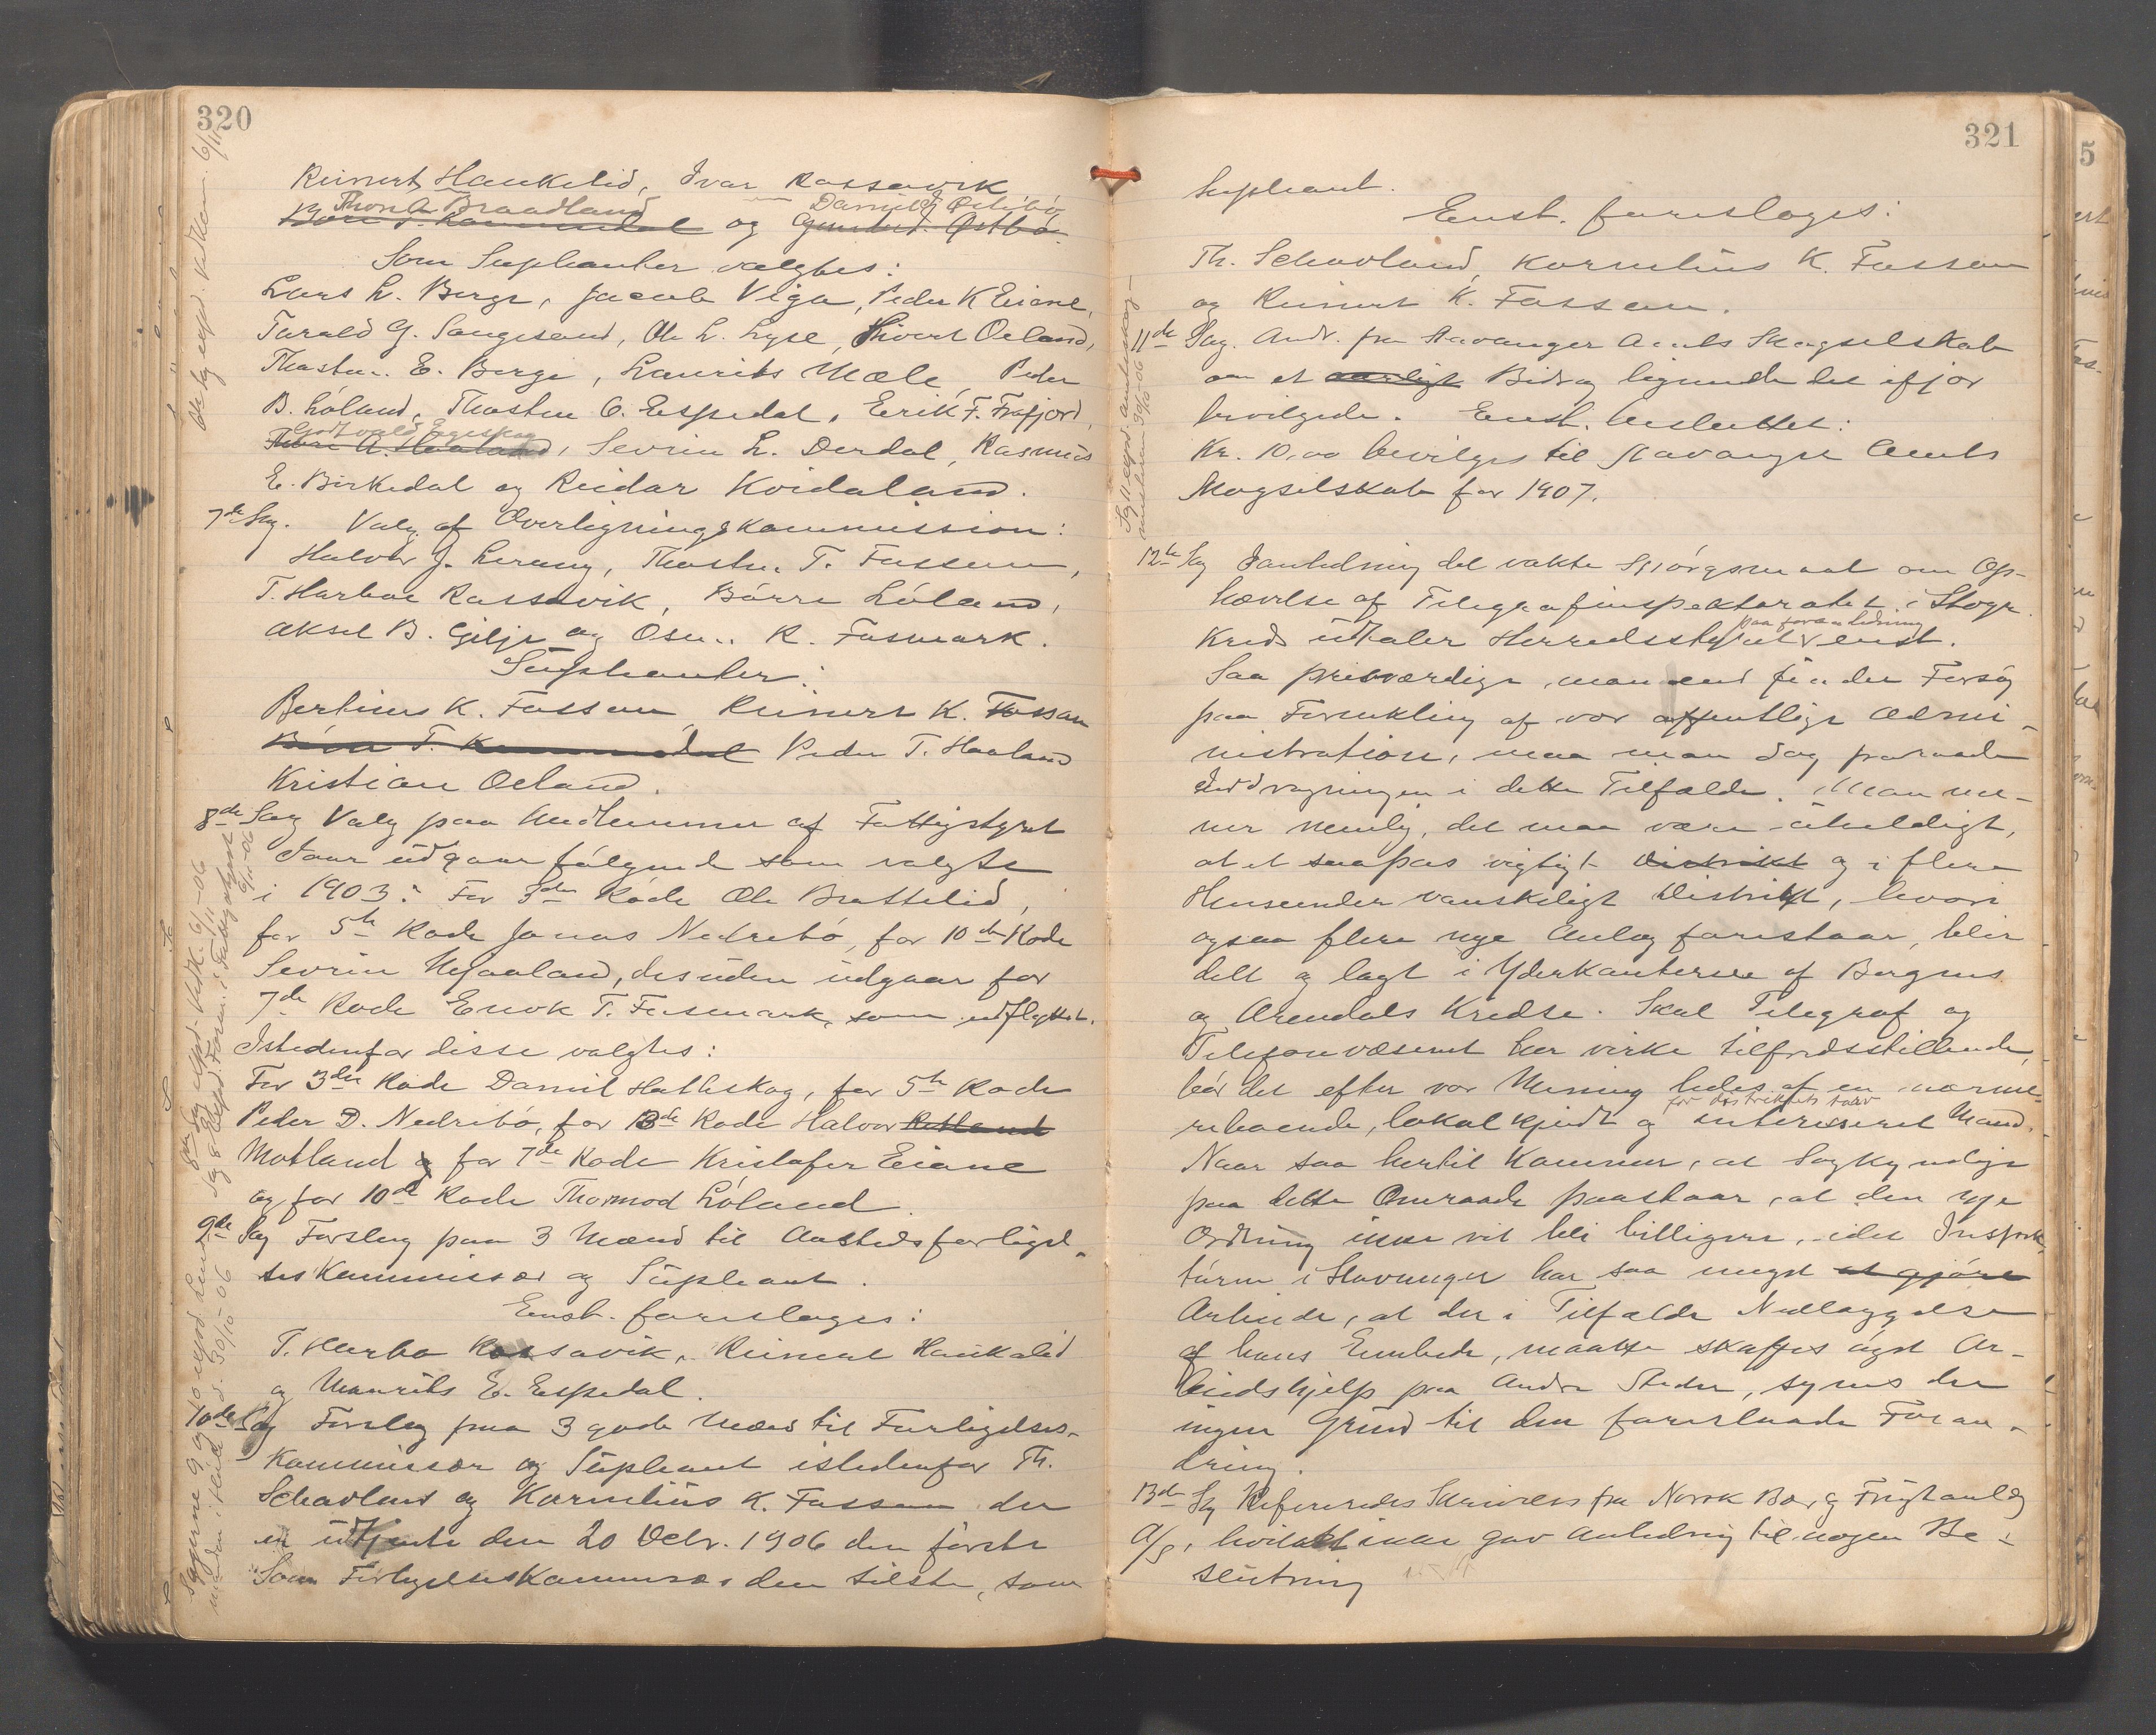 320
Reinert Haukelid, Ivar Rossavik
Thore A Braadland Daniel J Østebø
og Gunder J. Østbø.
Som Supleanter valgtes:
Lars L. Berge, Jacob Viga, Peder K Eiane,
Tarald G. Songesand, Ole L. Lyse, Sivert Oeland,
Thosten E. Berge, Laurits Mæle, Peder
B. Lóland, Thosten O. Espedal, Erik F. Frafjord,
Godtvald Egeskog
Thore A. Haaland, Sevrin L. Dørdal, Rasmus
E. Birkedal og Reidar Kvidaland.
7de Sag. Valg af Overligningskommission:
Halvor J. Lerang, Thosten T. Fossan,
T. Harboe Rossavik, Børre Lóland,
Aksel B. Gilje og Osm. K. Fosmark.
Supleanter:
Bertinus K. Fossan Reinert K. Fossan
Peder T. Haaland
Kristian Oeland.
8de Sag Valg paa Medlemmer af Fattigstyret
Iaar udgaar følgende som valgte
i 1903: For 3die Rode Ole Brattelid,
for 5te Rode Jonas Nedrebó, for 10de Rode
Sevrin Meaaland, desuden udgaar for
7de Rode Enok T. Fosmark, som udflyttet.
Istedenfor disse valgtes:
For 3die Rode Daniel Hatleskog, for 5te Rode
Peder D. Nedrebó, for 13de Rode Halvor
Motland og for 7de Rode Kristofer Eiane
og for 10de Rode Thormod Lóland.
9de Sag Forslag paa 3 Mænd til Aastedsforligel-
seskommissær og Supleant.
Enst. foresloges:
T. Harbo Rossavik, Reinert Haukalid
og Maurits E. Espedal.
10de Sag Forslag paa 3 gode Mænd til Forligelses-
kommissær og Supleant istedenfor Th.
Schavland og Kornelius K. Fossan der
er udtjente den 20 Decbr. 1906 den første
som Forligelseskommissær den sidste, som
321
Supleant.
Enst. foresloges:
Th. Schavland, Kornelius K. Fossan
og Reinert K. Fossan.
11de Sag. Andr. fra Stavanger Amts Skogselskab
om et aarligt Bidrag lignende det ifjor
bevilgede. Enst. besluttet:
Kr. 10,00 bevilges til Stavanger Amts
Skogselskab for 1907.
12te Sag I anledning det vakte Spórgsmaal om Op-
hævelse af Telegrafinspektoratet i Stvgr.
paa foranledning
Kreds udtaler Herredsstyret enst.
Saa prisværdige man end finder Forsóg
paa Forenkling af vor offentlige Admi-
nistration, maa man dog fraraade
Inddragningen i dette Tilfælde. Man me-
ner nemlig, det maa være uheldigt,
at et saapas vigtigt Distrikt og i flere
Henseender vanskeligt Distrikt, hvori
ogsaa flere nye Anlæg forestaar, blir
delt og lagt i Yderkanterne af Bergens
og Arendals Kredse. Skal Telegraf og
Telefonvæsenet her virke tilfredsstillende,
bór det efter vor Mening ledes af en nærme-
for distriktets tarv
reboende, lokalkjendt og interesseret Mand.
Naar saa hertil kommer, at Sagkyndige
paa dette Omraade paastaar, at den nye
Ordning ikke vil bli billigere, idet Inspek-
túren i Stavanger har saa meget at gjóre
Arbeide, at der i Tilfælde Nedlæggelse
af hans Embede, maatte skaffes óget Ar-
beidshjelp paa andre Steder, synes der
ingen Grund til den foreslaade Foran-
dring.
13de Sag Refereredes Skrivelse fra Norsk Bær og Frugtanlæg
A/S, hvilket ikke gav Anledning til nogen Be-
slutning